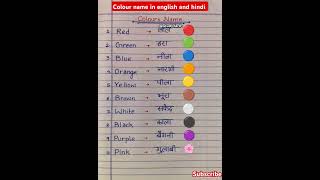 Colour name in english and hindi
Colours Name
1 Red → लाल
2 Green → हरा
3 Blue → नीला
4 Orange → नारंगी
5 Yellow → पीला
6 Brown → भूरा
7 White → सफेद
8 Black → काला
9 Purple → बैंगनी
10 Pink → गुलाबी
Subscribe